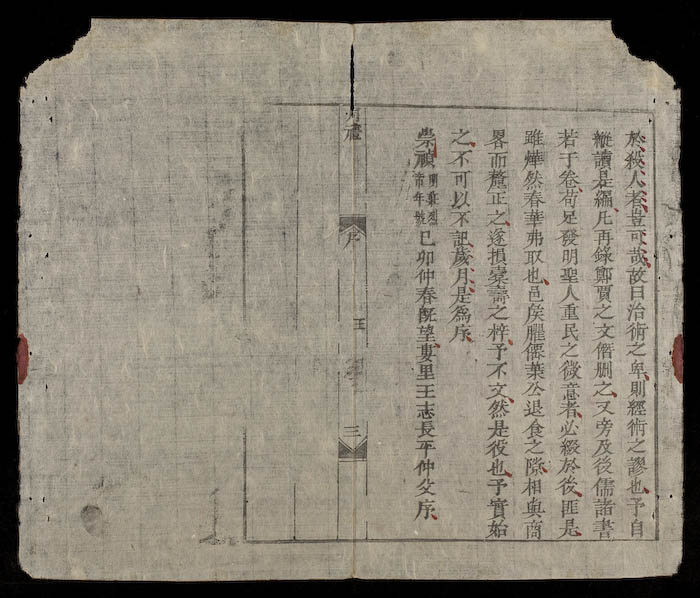 於殺人者豈可哉故曰治術之卑則經術之謬也予自
縱讀是編凡再錄鄭賈之文僭刪之又旁及後儒諸書
若于卷苟足發明聖人重民之微意者必綴於後匪是
雖燁然春華弗取也邑矦臞儒葉公退食之際相與商
畧而釐正之遂損橐壽之梓予不文然是役也予實始
之不可以不記歲月是爲序
崇禎明莊烈帝年號己卯仲春旣望婁里王志長平仲父序
周禮
序
三